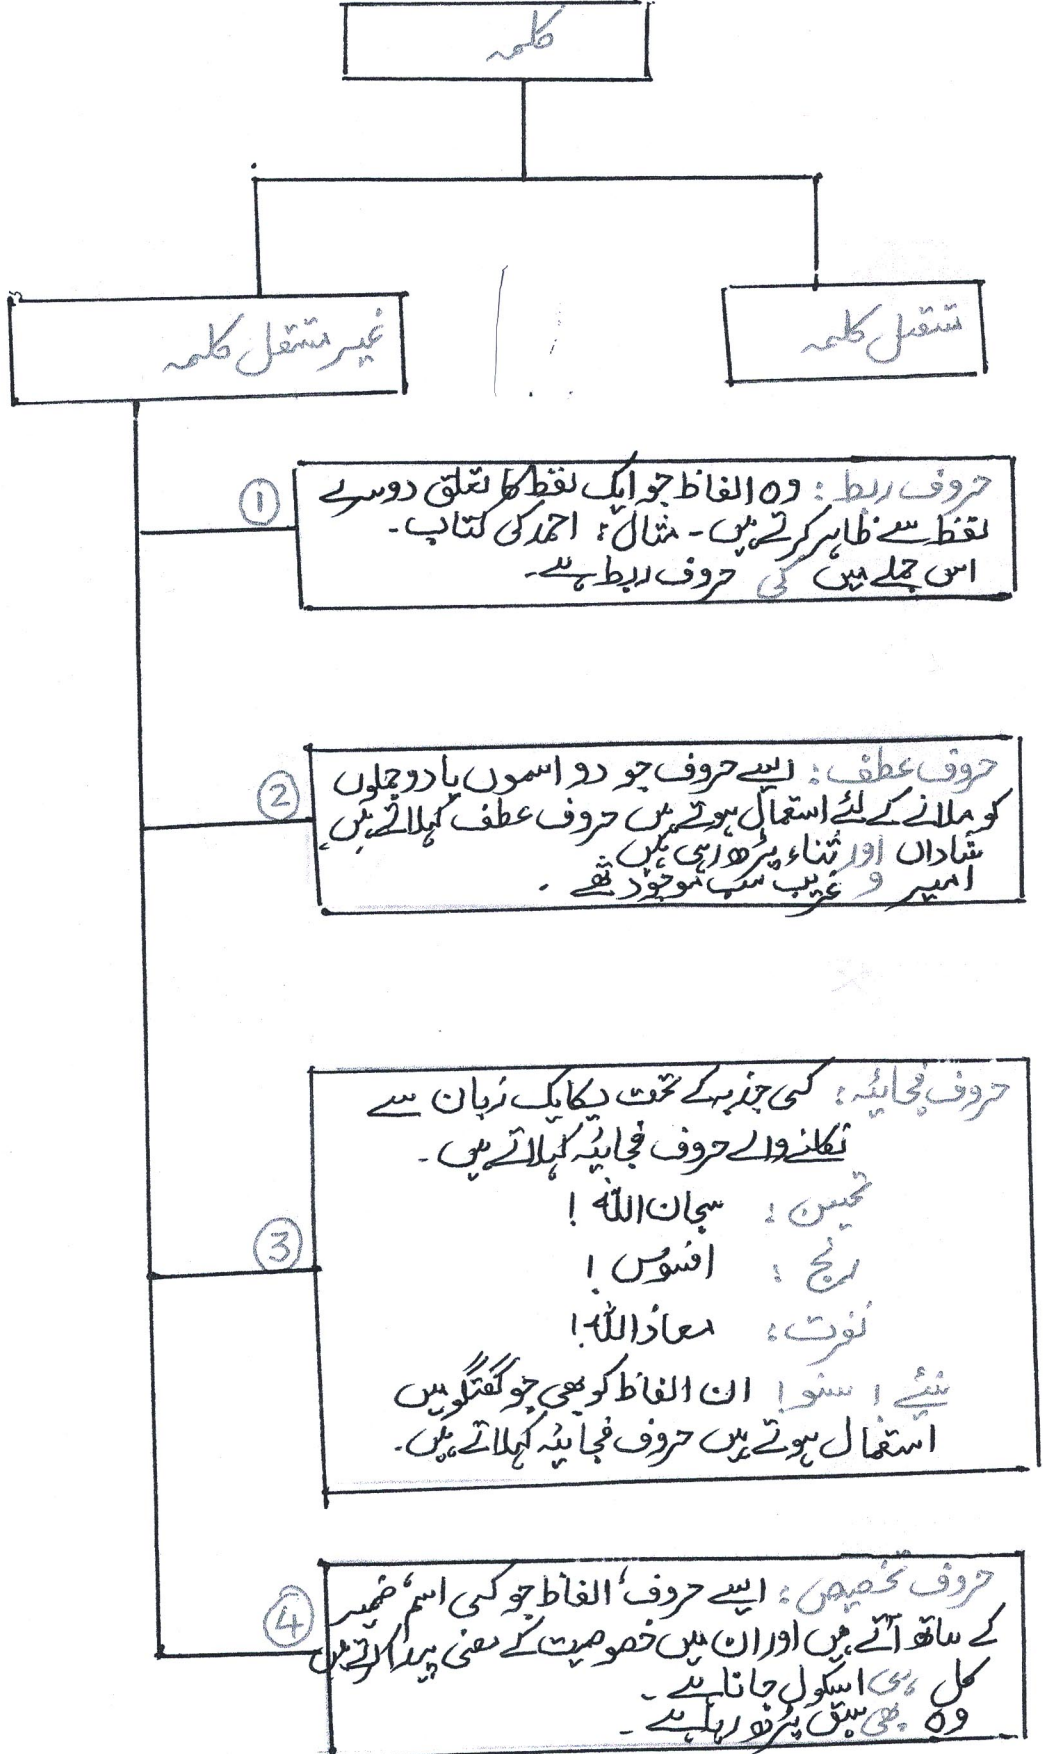 کلمہ
مستقل کلمہ
غیر مستقل کلمہ
①
حروف ربط: وہ الفاظ جو ایک لفظ کا تعلق دوسرے
لفظ سے ظاہر کرتے ہیں۔ مثال: احمد کی کتاب۔
اس جملے میں کی حروف ربط ہے۔
②
حروف عطف: ایسے حروف جو دو اسموں یا دو جملوں
کو ملانے کے لئے استعمال ہوتے ہیں حروف عطف کہلاتے ہیں۔
شاداں اور ثناء پڑھ رہی ہیں
امیر و غریب سب موجود تھے۔
③
حروف فجائیہ: کسی جذبہ کے تحت یکایک زبان سے
نکلنے والے حروف فجائیہ کہلاتے ہیں۔
تحسین: سبحان اللہ!
رنج: افسوس!
نفرت: معاذ اللہ!
سنیئے! سنو! ان الفاظ کو بھی جو گفتگو میں
استعمال ہوتے ہیں حروف فجائیہ کہلاتے ہیں۔
④
حروف تخصیص: ایسے حروف، الفاظ جو کسی اسم، ضمیر
کے ساتھ آتے ہیں اور ان میں خصوصیت کے معنی پیدا کرتے ہیں
کل ہی اسکول جانا ہے۔
وہ بھی سبق پڑھ رہا ہے۔